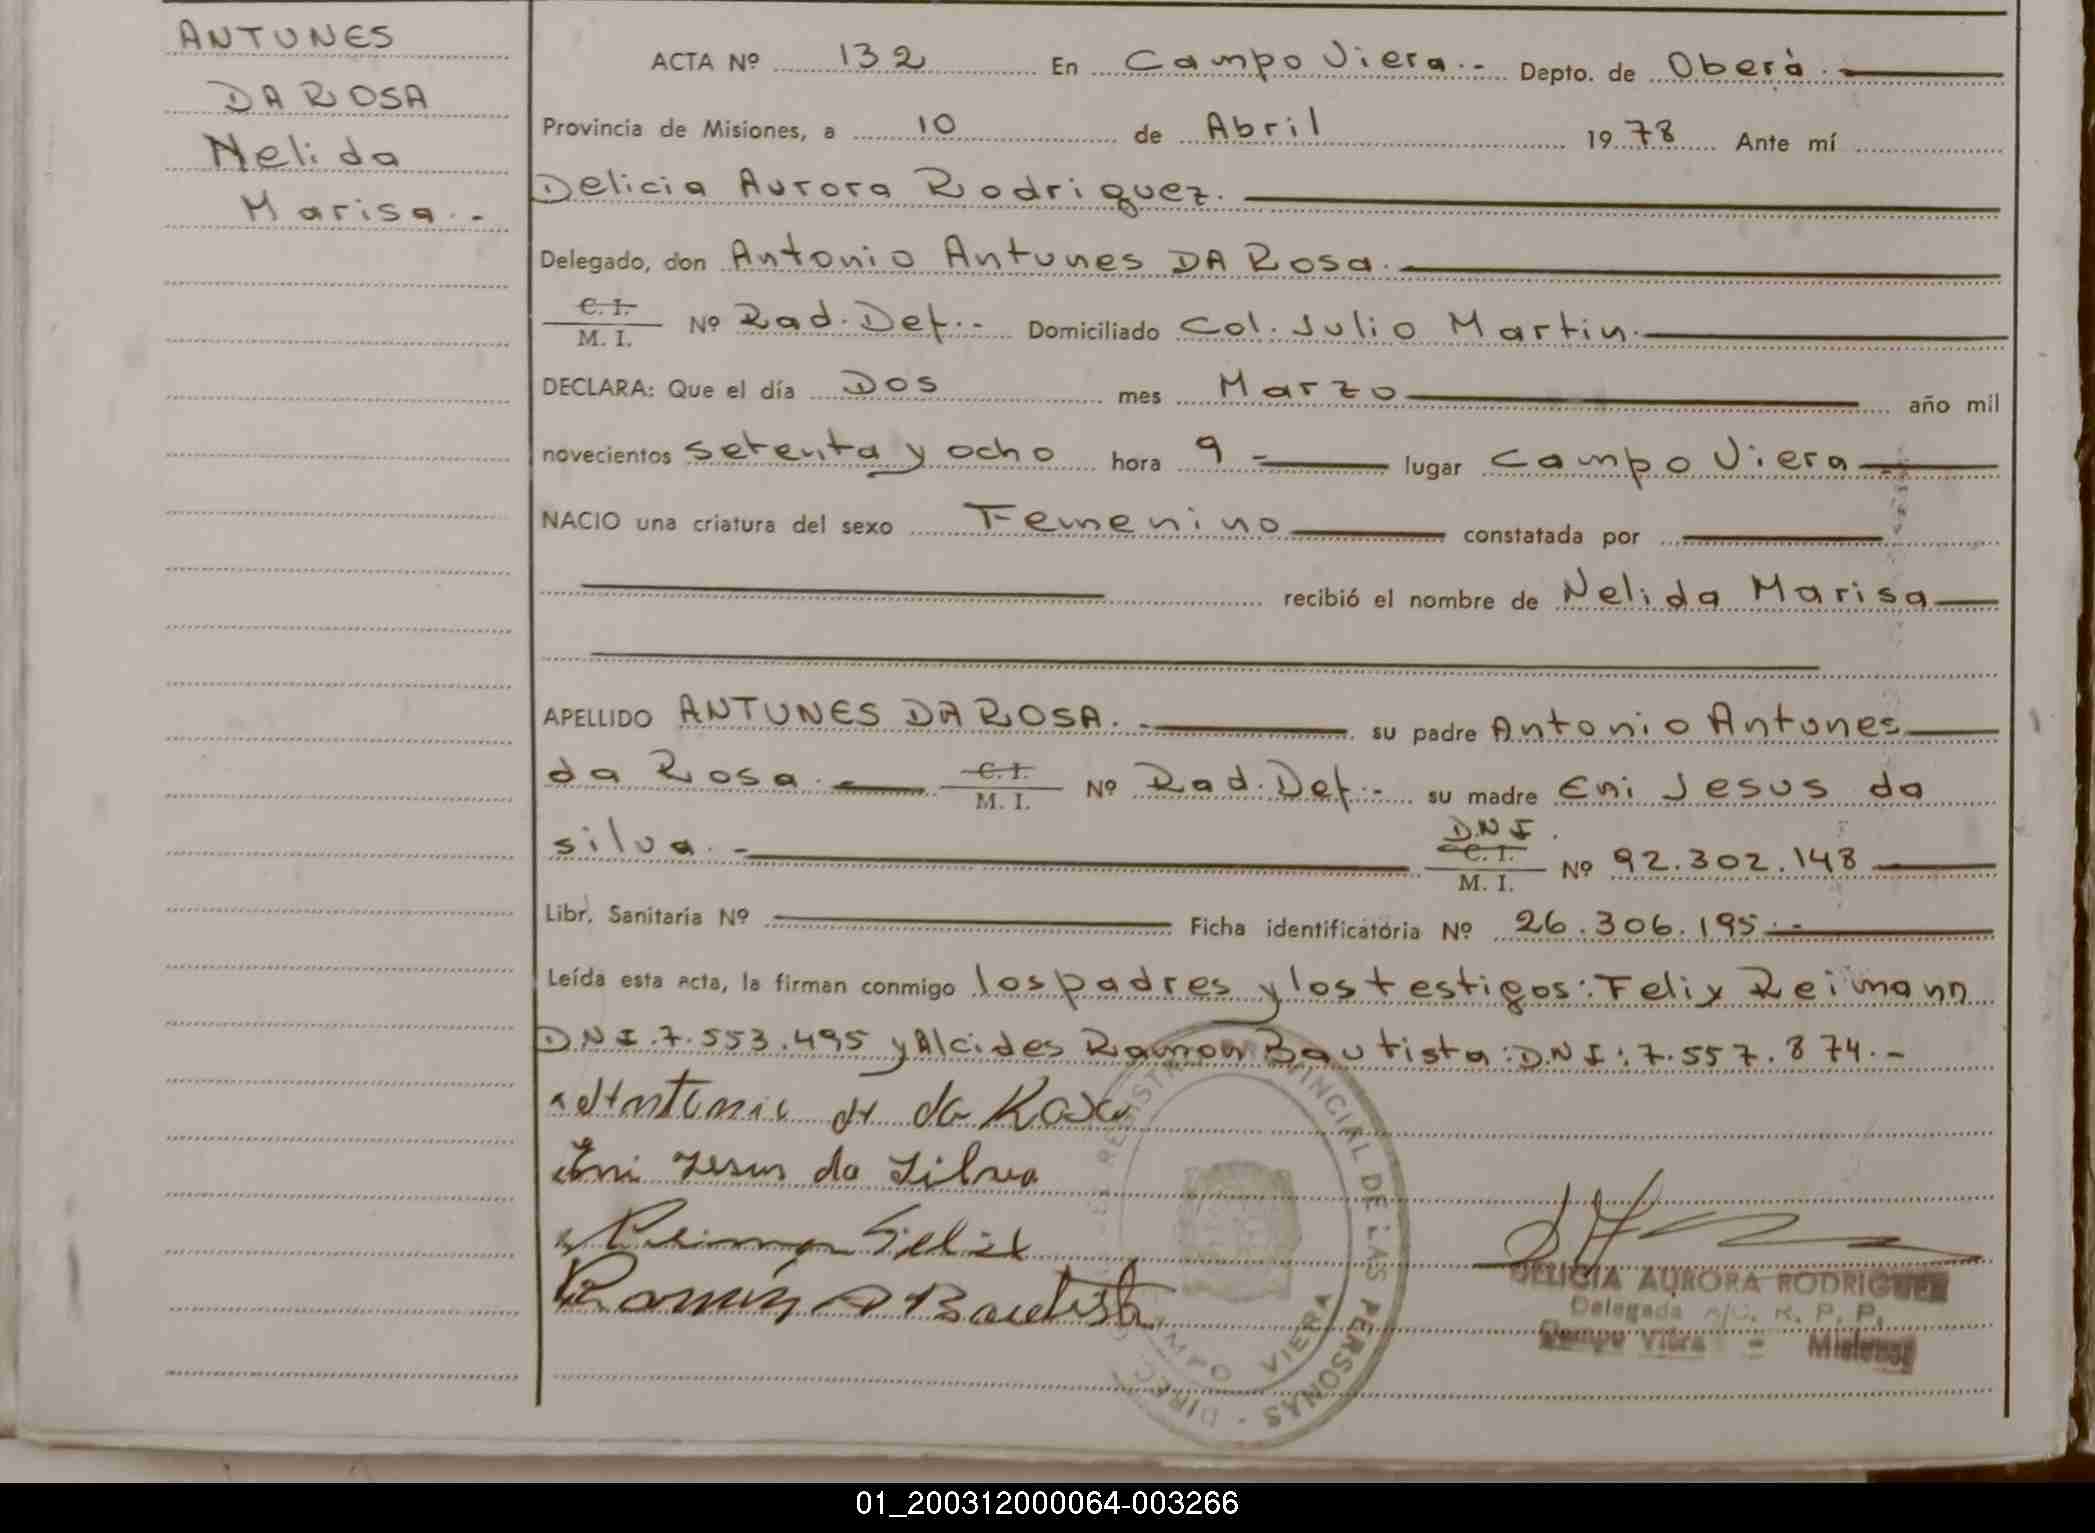 ANTUNES
DA ROSA
Nelida
Marisa.-
ACTA Nº 132 En Campo Viera.- Depto. de Oberá.
Provincia de Misiones, a 10 de Abril 1978 Ante mí
Delicia Aurora Rodriguez.
Delegado, don Antonio Antunes DA Rosa.
C. I.
M. I. Nº Rad. Def.- Domiciliado Col. Julio Martin.
DECLARA: Que el día Dos mes Marzo año mil
novecientos setenta y ocho hora 9 - lugar Campo Viera
NACIO una criatura del sexo Femenino constatada por
recibió el nombre de Nelida Marisa
APELLIDO ANTUNES DA ROSA.- su padre Antonio Antunes
da Rosa. C. I.
M. I. Nº Rad. Def.- su madre Eni Jesus da
silva.- D.N.I.
C. I.
M. I. Nº 92.302.148
Libr. Sanitaria Nº Ficha identificatoria Nº 26.306.195.-
Leída esta acta, la firman conmigo los padres y los testigos: Felix Reimann
DNI.7.553.495 y Alcides Ramon Bautista: D.N.I: 7.557.874.-
Antonio A da Rosa
Eni Jesus da Silva
Reiman Felix
Ramón A Bautista
DIREC. REGISTRO PROVINCIAL DE LAS PERSONAS
CAMPO VIERA
DELICIA AURORA RODRIGUEZ
Delegada A/C. R. P. P.
Campo Viera - Misiones
01_200312000064-003266